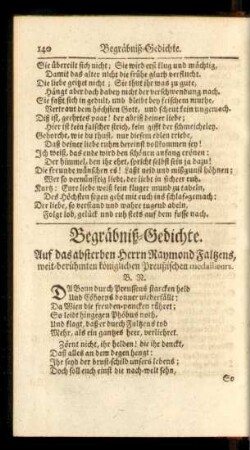 140 Begräbniß-Gedichte.
Sie übereilt sich nicht; Sie wird erst klug und mächtig,
Damit das alter nicht die frühe gluth verflucht.
Die liebe geitzet nicht; Sie thut ihr was zu gute,
Hängt aber doch dabey nicht der verschwendung nach.
Sie faßt sich in gedult, und bleibt bey frischem muthe,
Vertraut dem höchsten Gott, und scheut kein ungemach.
Diß ist, geehrtes paar! der abriß deiner liebe;
Hier ist kein falscher strich, kein gifft der schmeicheley.
Gehorche, wie du thust, nur diesem edlen triebe,
Daß deiner liebe ruhm hereinst vollkommen sey!
Ich weiß, das ende wird den schönen anfang crönen:
Der himmel, den ihr ehrt, spricht selbst sein ja dazu!
Die freunde wünschen es! Laßt neid und mißgunst höhnen;
Wer so vernünfftig liebt, der liebt in sichrer ruh.
Kurtz: Eure liebe weiß kein kluger mund zu tadeln,
Des Höchsten segen geht mit euch ins schlaf-gemach:
Die liebe, so verstand und wahre tugend adeln,
Folgt lob, gelück und ruh stets auf dem fusse nach.
Begräbniß-Gedichte.
Auf das absterben Herrn Raymond Faltzens,
weit-berühmten königlichen Preußischen medailleurs.
B. N.
DA Bonn durch Preussens starcken held
Und Cöhorns donner niederfällt;
Da Wien die freuden-pancken rühret;
So leidt hingegen Phöbus noth,
Und klagt, daß er durch Faltzens tod
Mehr, als ein gantzes heer, verliehret.
Zörnt nicht, ihr helden! ihr die denckt,
Daß alles an dem degen hengt:
Ihr seyd der brust-schild unsers lebens;
Doch soll euch einst die nach-welt sehn,
So